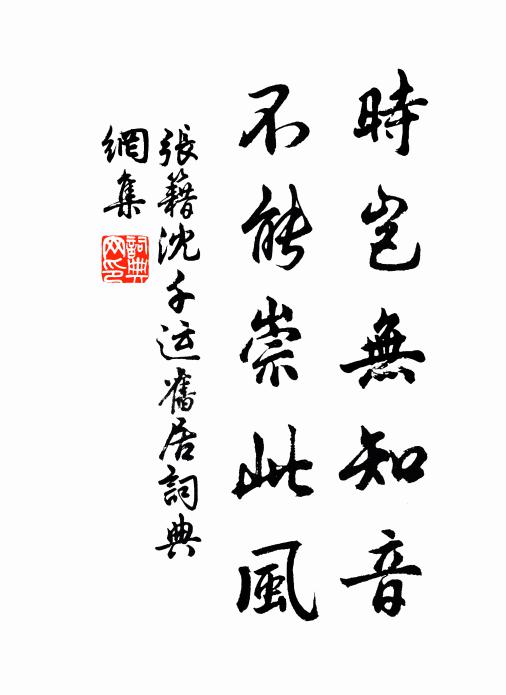 時岂無知音
不能崇此風
張籍沈千运舊居詞典
網集
詞典
网印